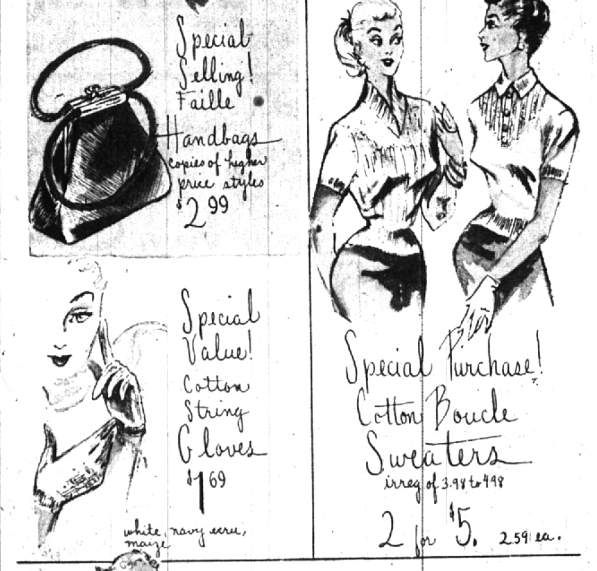 Special
Selling!
Faille
Handbags
copies of higher
price styles
$2.99
Special
Value!
Cotton
String
Gloves
$1.69
white, navy ecru,
maize
Special Purchase!
Cotton Boucle
Sweaters
irreg of 3.98 to 4.98
2 for $5. 2.59 ea.